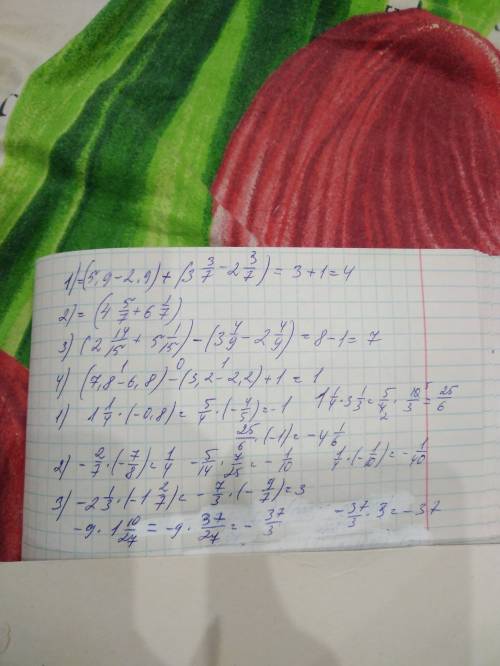 1) = (5,9 - 2,9) + (3 3/7 - 2 3/7) = 3 + 1 = 4
2) = (4 5/7 + 6 1/7)
3) (2 14/15 + 5 1/15) - (3 4/9 - 2 4/9) = 8 - 1 = 7
1 0 1
4) (7,8 - 6,8) - (3,2 - 2,2) + 1 = 1
1) 1 1/4 · (-0,8) = 5/4 · (-4/5) = -1 1 1/4 · 3 1/3 = 5/4 · 10/3 = 25/6
2 5
25/6 · (-1) = -4 1/6
2) -2/7 · (-7/8) = 1/4 -5/14 · 7/25 = -1/10 1/4 · (-1/10) = -1/40
3) -2 1/3 · (-1 2/7) = -7/3 · (-9/7) = 3
-9 · 1 10/27 = -9 · 37/27 = -37/3 -37/3 · 3 = -37